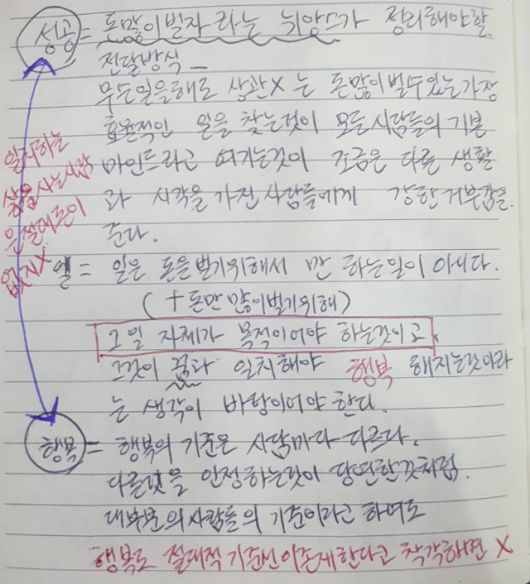 성공 = 돈많이벌자 라는 뉘앙스가 정리해야할.
전달방식_
무슨일을해도 상관X 는 돈많이벌수있는가장
효율적인 일을 찾는것이 모든사람들의 기본
마인드라고 여기는것이 조금은 다른 생활
과 시각을 가진 사람들에게 강한거부감을.
준다.
일치하는
삶을 사는사람
은 절대돈이
없지X
일 = 일은 돈을벌기위해서 만 하는일이 아니다.
(+돈만 많이벌기위해)
그일 자체가 목적이어야 하는것이고
그것이 꿈과 일치해야 행복 해지는것이라
는 생각이 바탕이어야 한다.
행복 = 행복의 기준은 사람마다 다르다.
다름을 인정하는것이 당연한것처럼.
대부분의 사람들의 기준이라고 하여도
행복도 절대적 기준선이존재한다고 착각하면 X